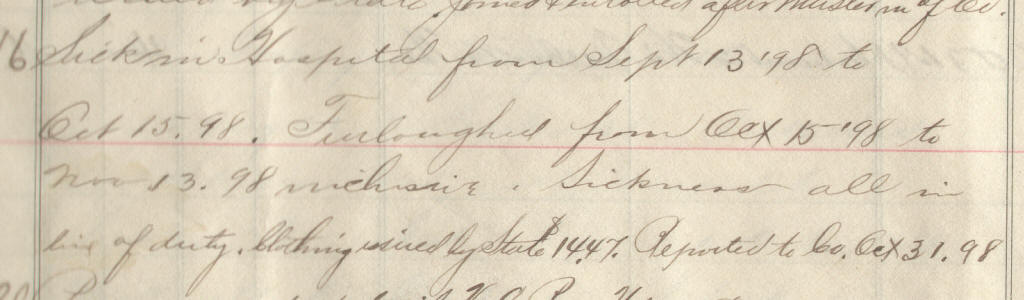 Joined & enrolled after Muster in of Co.
16 Sick in Hospital from Sept 13 '98 to
Oct 15. 98. Furloughed from Oct 15 '98 to
Nov 13. 98 inclusive. Sickness all in
line of duty. Clothing issued by State $14.47. Reported to Co. Oct 31. 98